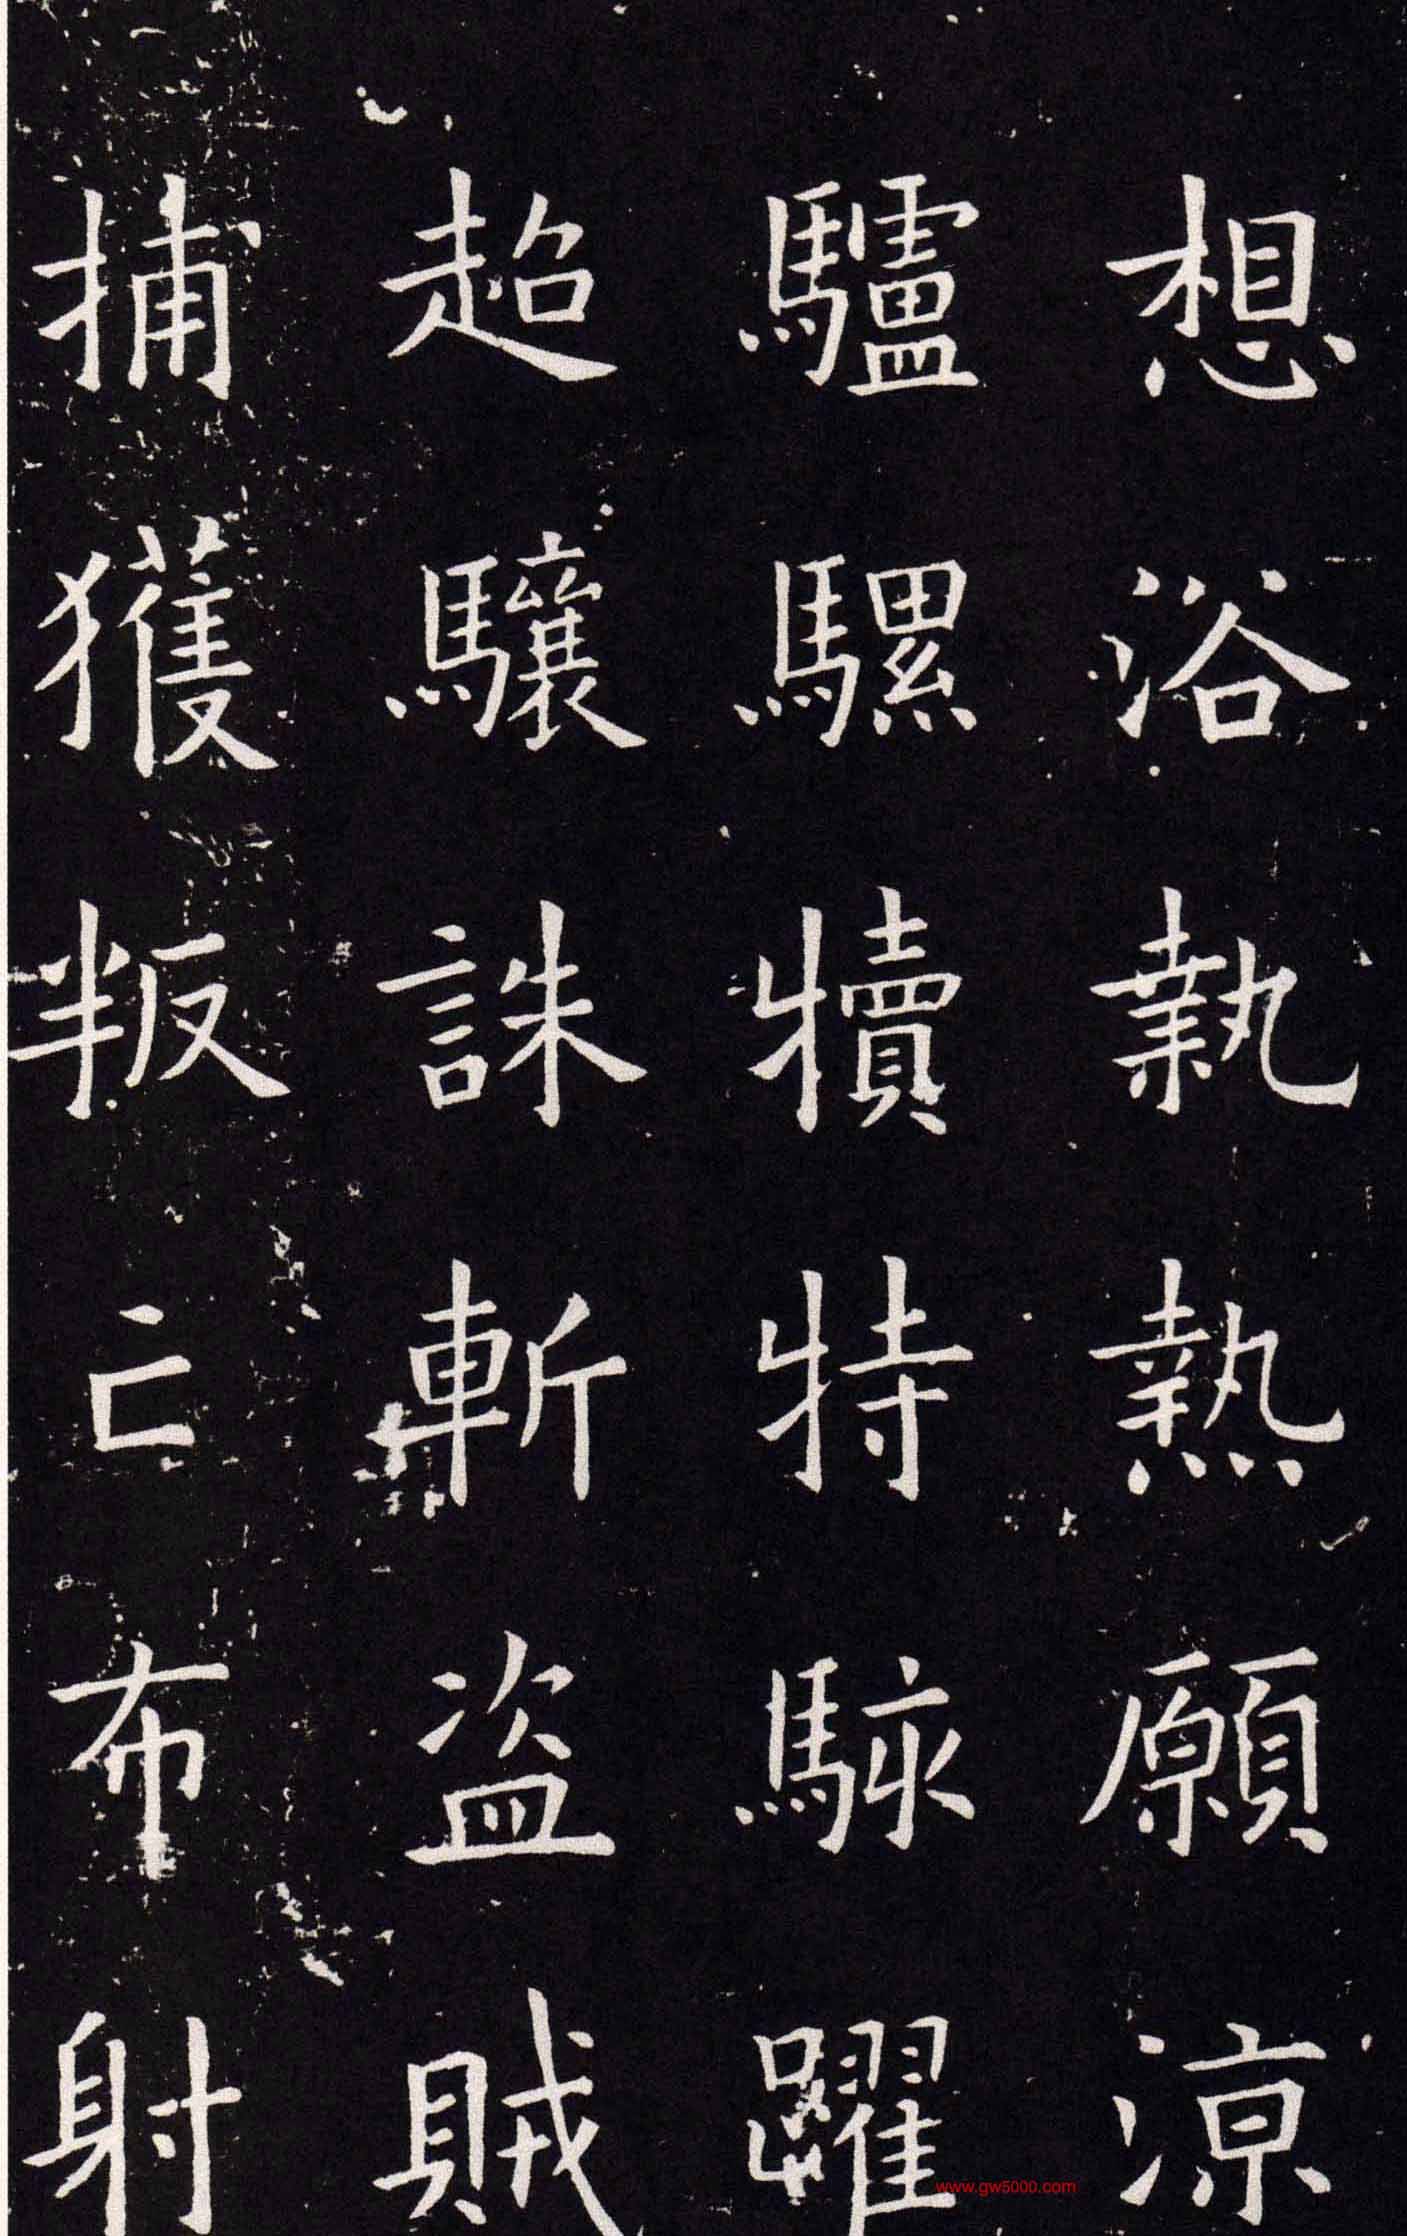 想浴執熱願涼
驢騾犢特駭躍
超驤誅斬盜賊
捕獲叛亡布射
www.gw5000.com